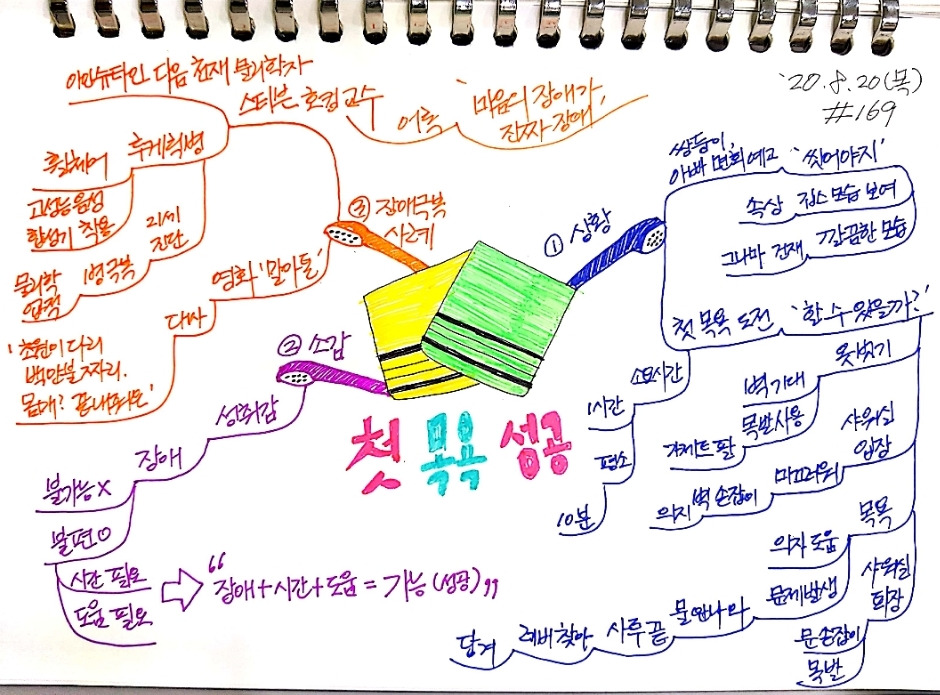 '20.8.20(목)
#169
첫 목욕 성공
① 상황
쌍둥이,
아빠 면회 예고
'씻어야지'
속상
깁스 모습 보여
그나마 건재
깔끔한 모습
첫 목욕 도전
'할 수 있을까?'
소요시간
1시간
평소
10분
옷 벗기
벽 기대
목발 사용
샤워실
입장
미끄러워
벽 손잡이
의지
목욕
의자 도움
문제발생
물 안 나와
샤루 끝
레버 찾아
당겨
샤워실
퇴장
문 손잡이
목발
② 소감
성취감
장애
불가능 X
불편 O
시간 필요
도움 필요
"장애+시간+도움 = 가능 (성공)"
③ 장애극복
사례
아인슈타인 다음 천재 물리학자
스티븐 호킹 교수
어록
'마음의 장애가,
진짜 장애'
루게릭병
휠체어
고성능 음성
합성기 착용
21세
진단
병 극복
물리학
업적
영화 '말아톤'
대사
'초원이 다리
백만불짜리.
몸매? 끝내줘요'